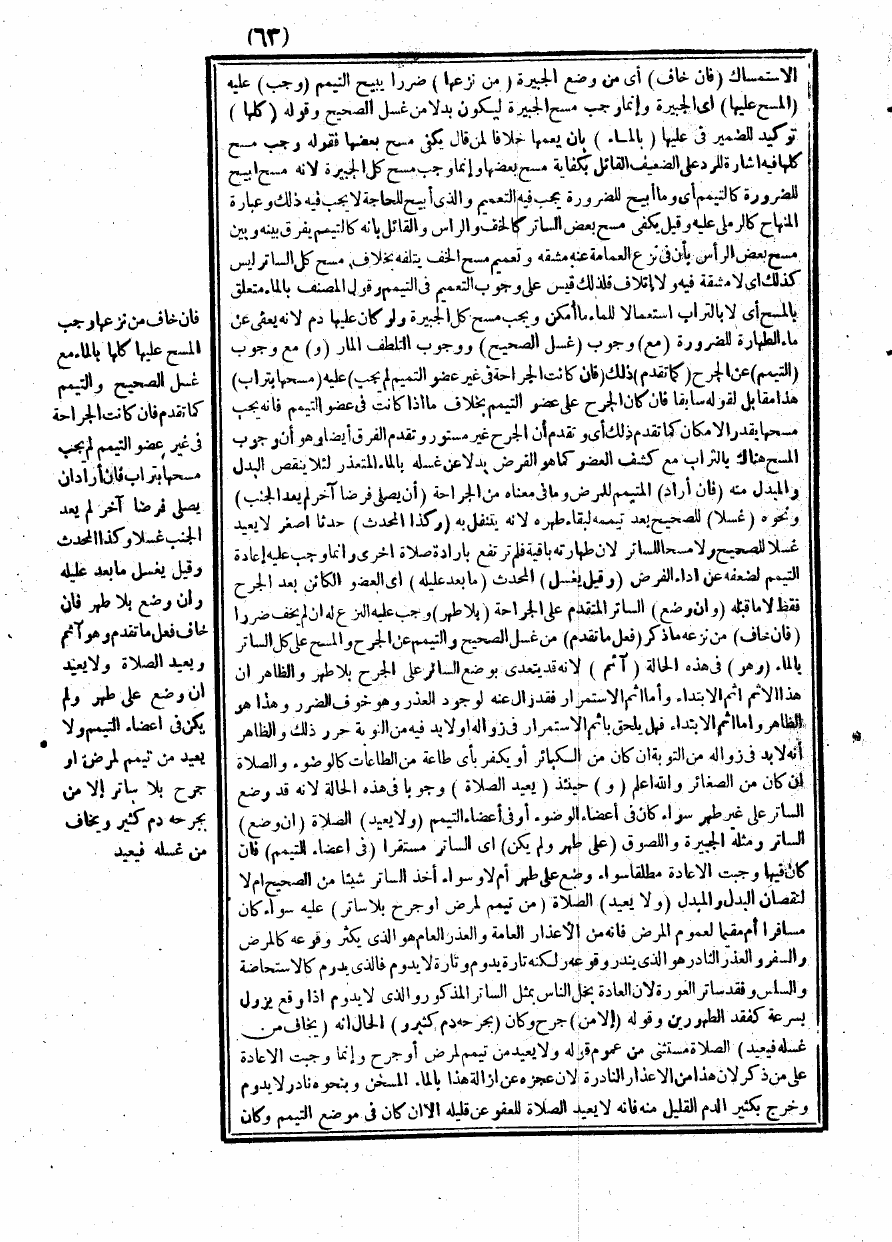 (٦٣)
الاستمساك (فان خاف) أى من وضع الجبيرة (من نزعها) ضررا يبيح التيمم (وجب) عليه
(المسح عليها) اى الجبيرة وإنما وجب مسح الجبيرة ليكون بدلا من غسل الصحيح وقوله (كلها)
توكيد للضمير فى عليها (بالماء) بان يعمها خلافا لمن قال يكفى مسح بعضها فقوله وجب مسح
كلها فيه اشارة للرد على الضعيف القائل بكفاية مسح بعضها وإنما وجب مسح كل الجبيرة لانه مسح ابيح
للضرورة كالتيمم أى وما أبيح للضرورة يجب فيه التعميم والذى أبيح للحاجة لا يجب فيه ذلك وعبارة
المنهاج كالرملى عليه وقيل يكفى مسح بعض الساتر كالخف والراس والقائل بانه كالتيمم يفرق بينه وبين
مسح بعض الرأس بأن فى نزع العمامة عنه مشقه وتعميم مسح الخف يتلفه بخلاف مسح كل الساتر ليس
كذلك اى لا مشقة فيه ولا إتلاف فلذلك قيس على وجوب التعميم فى التيمم وقول المصنف بالماء متعلق
بالمسح أى لا بالتراب استعمالا للماء ما أمكن ويجب مسح كل الجبيرة ولو كان عليها دم لانه يعفى عن
ماء الطهارة للضرورة (مع) وجوب (غسل الصحيح) ووجوب التلطف المار (و) مع وجوب
(التيمم) عن الجرح (كما تقدم) ذلك (فان كانت الجراحة فى غير عضو التميم لم يجب) عليه (مسحها بتراب)
هذا مقابل لقوله سابقا فان كان الجرح على عضو التيمم بخلاف ما اذا كانت فى عضو التيمم فانه يجب
مسحها بقدر الامكان كما تقدم ذلك أى وتقدم أن الجرح غير مستور وتقدم الفرق أيضا وهو أن وجوب
المسح هناك بالتراب مع كشف العضو كما هو الفرض بدلا عن غسله بالماء المتعذر لئلا ينقص البدل
والمبدل منه (فان أراد) المتيمم للمرض وما فى معناه من الجراحة (أن يصلى فرضا آخر لم يعد الجنب)
ونحوه (غسلا) للصحيح بعد تيممه لبقاء طهره لانه يتنفل به (وكذا المحدث) حدثا اصغر لا يعيد
غسلا للصحيح ولا مسحا للساتر لان طهارته باقية فلم ترتفع بارادة صلاة اخرى وانما وجب عليه إعادة
التيمم لضعفه عن اداء الفرض (وقيل يغسل) المحدث (ما بعد عليله) اى العضو الكائن بعد الجرح
فقط لا ما قبله (وان وضع) الساتر المتقدم على الجراحة (بلا طهر) وجب عليه النزع له ان لم يخف ضررا
(فان خاف) من نزعه ما ذكر (فعل ما تقدم) من غسل الصحيح والتيمم عن الجرح والمسح على كل الساتر
بالماء (وهو) فى هذه الحالة (آثم) لانه قد يتعدى بوضع الساتر على الجرح بلا طهر والظاهر ان
هذا الاثم اثم الابتداء وأما اثم الاستمرار فقد زال عنه لوجود العذر وهو خوف الضرر وهذا هو
الظاهر واما اثم الابتداء فهل يلحق باثم الاستمرار فى زواله اولا بد فيه من التوبة حرر ذلك والظاهر
أنه لابد فى زواله من التوبة ان كان من الكبائر أو يكفر بأى طاعة من الطاعات كالوضوء والصلاة
ان كان من الصغائر والله اعلم (و) حينئذ (يعيد الصلاة) وجوبا فى هذه الحالة لانه قد وضع
الساتر على غير طهر سواء كان فى أعضاء الوضوء أو فى أعضاء التيمم (ولا يعيد) الصلاة (ان وضع)
الساتر ومثله الجبيرة واللصوق (على طهر ولم يكن) اى الساتر مستقرا (فى اعضاء التيمم) فان
كان فيها وجبت الاعادة مطلقا سواء وضع على طهر أم لا وسواء أخذ الساتر شيئا من الصحيح ام لا
لنقصان البدل والمبدل (ولا يعيد) الصلاة (من تيمم لمرض او جرح بلا ساتر) عليه سواء كان
مسافرا أم مقيما لعموم المرض فانه من الأعذار العامة والعذر العام هو الذى يكثر وقوعه كالمرض
والسفر والعذر النادر هو الذى يندر وقوعه ولكنه تارة يدوم وتارة لا يدوم فالذى يدوم كالاستحاضة
والسلس وفقد ساتر العورة لان العادة بخل الناس بمثل الساتر المذكور والذى لا يدوم اذا وقع يزول
بسرعة كفقد الطهورين وقوله (إلا من) جرح وكان (بجرحه دم كثير و) الحال انه (يخاف من
غسله فيعيد) الصلاة مستثنى من عموم قوله ولا يعيد من تيمم لمرض أو جرح وإنما وجبت الاعادة
على من ذكر لان هذا من الاعذار النادرة لان عجزه عن ازالة هذا بالماء المسخن وبنحوه نادر لا يدوم
وخرج بكثير الدم القليل منه فانه لا يعيد الصلاة للعفو عن قليله الا ان كان فى موضع التيمم وكان
فان خاف من نزعها وجب
المسح عليها كلها بالماء مع
غسل الصحيح والتيمم
كما تقدم فان كانت الجراحة
فى غير عضو التيمم لم يجب
مسحها بتراب فان أراد ان
يصلى فرضا آخر لم يعد
الجنب غسلا وكذا المحدث
وقيل يغسل ما بعد عليله
وان وضع بلا طهر فان
خاف فعل ما تقدم وهو آثم
ويعيد الصلاة ولا يعيد
ان وضع على طهر ولم
يكن فى اعضاء التيمم ولا
يعيد من تيمم لمرض او
جرح بلا ساتر إلا من
بجرحه دم كثير ويخاف
من غسله فيعيد